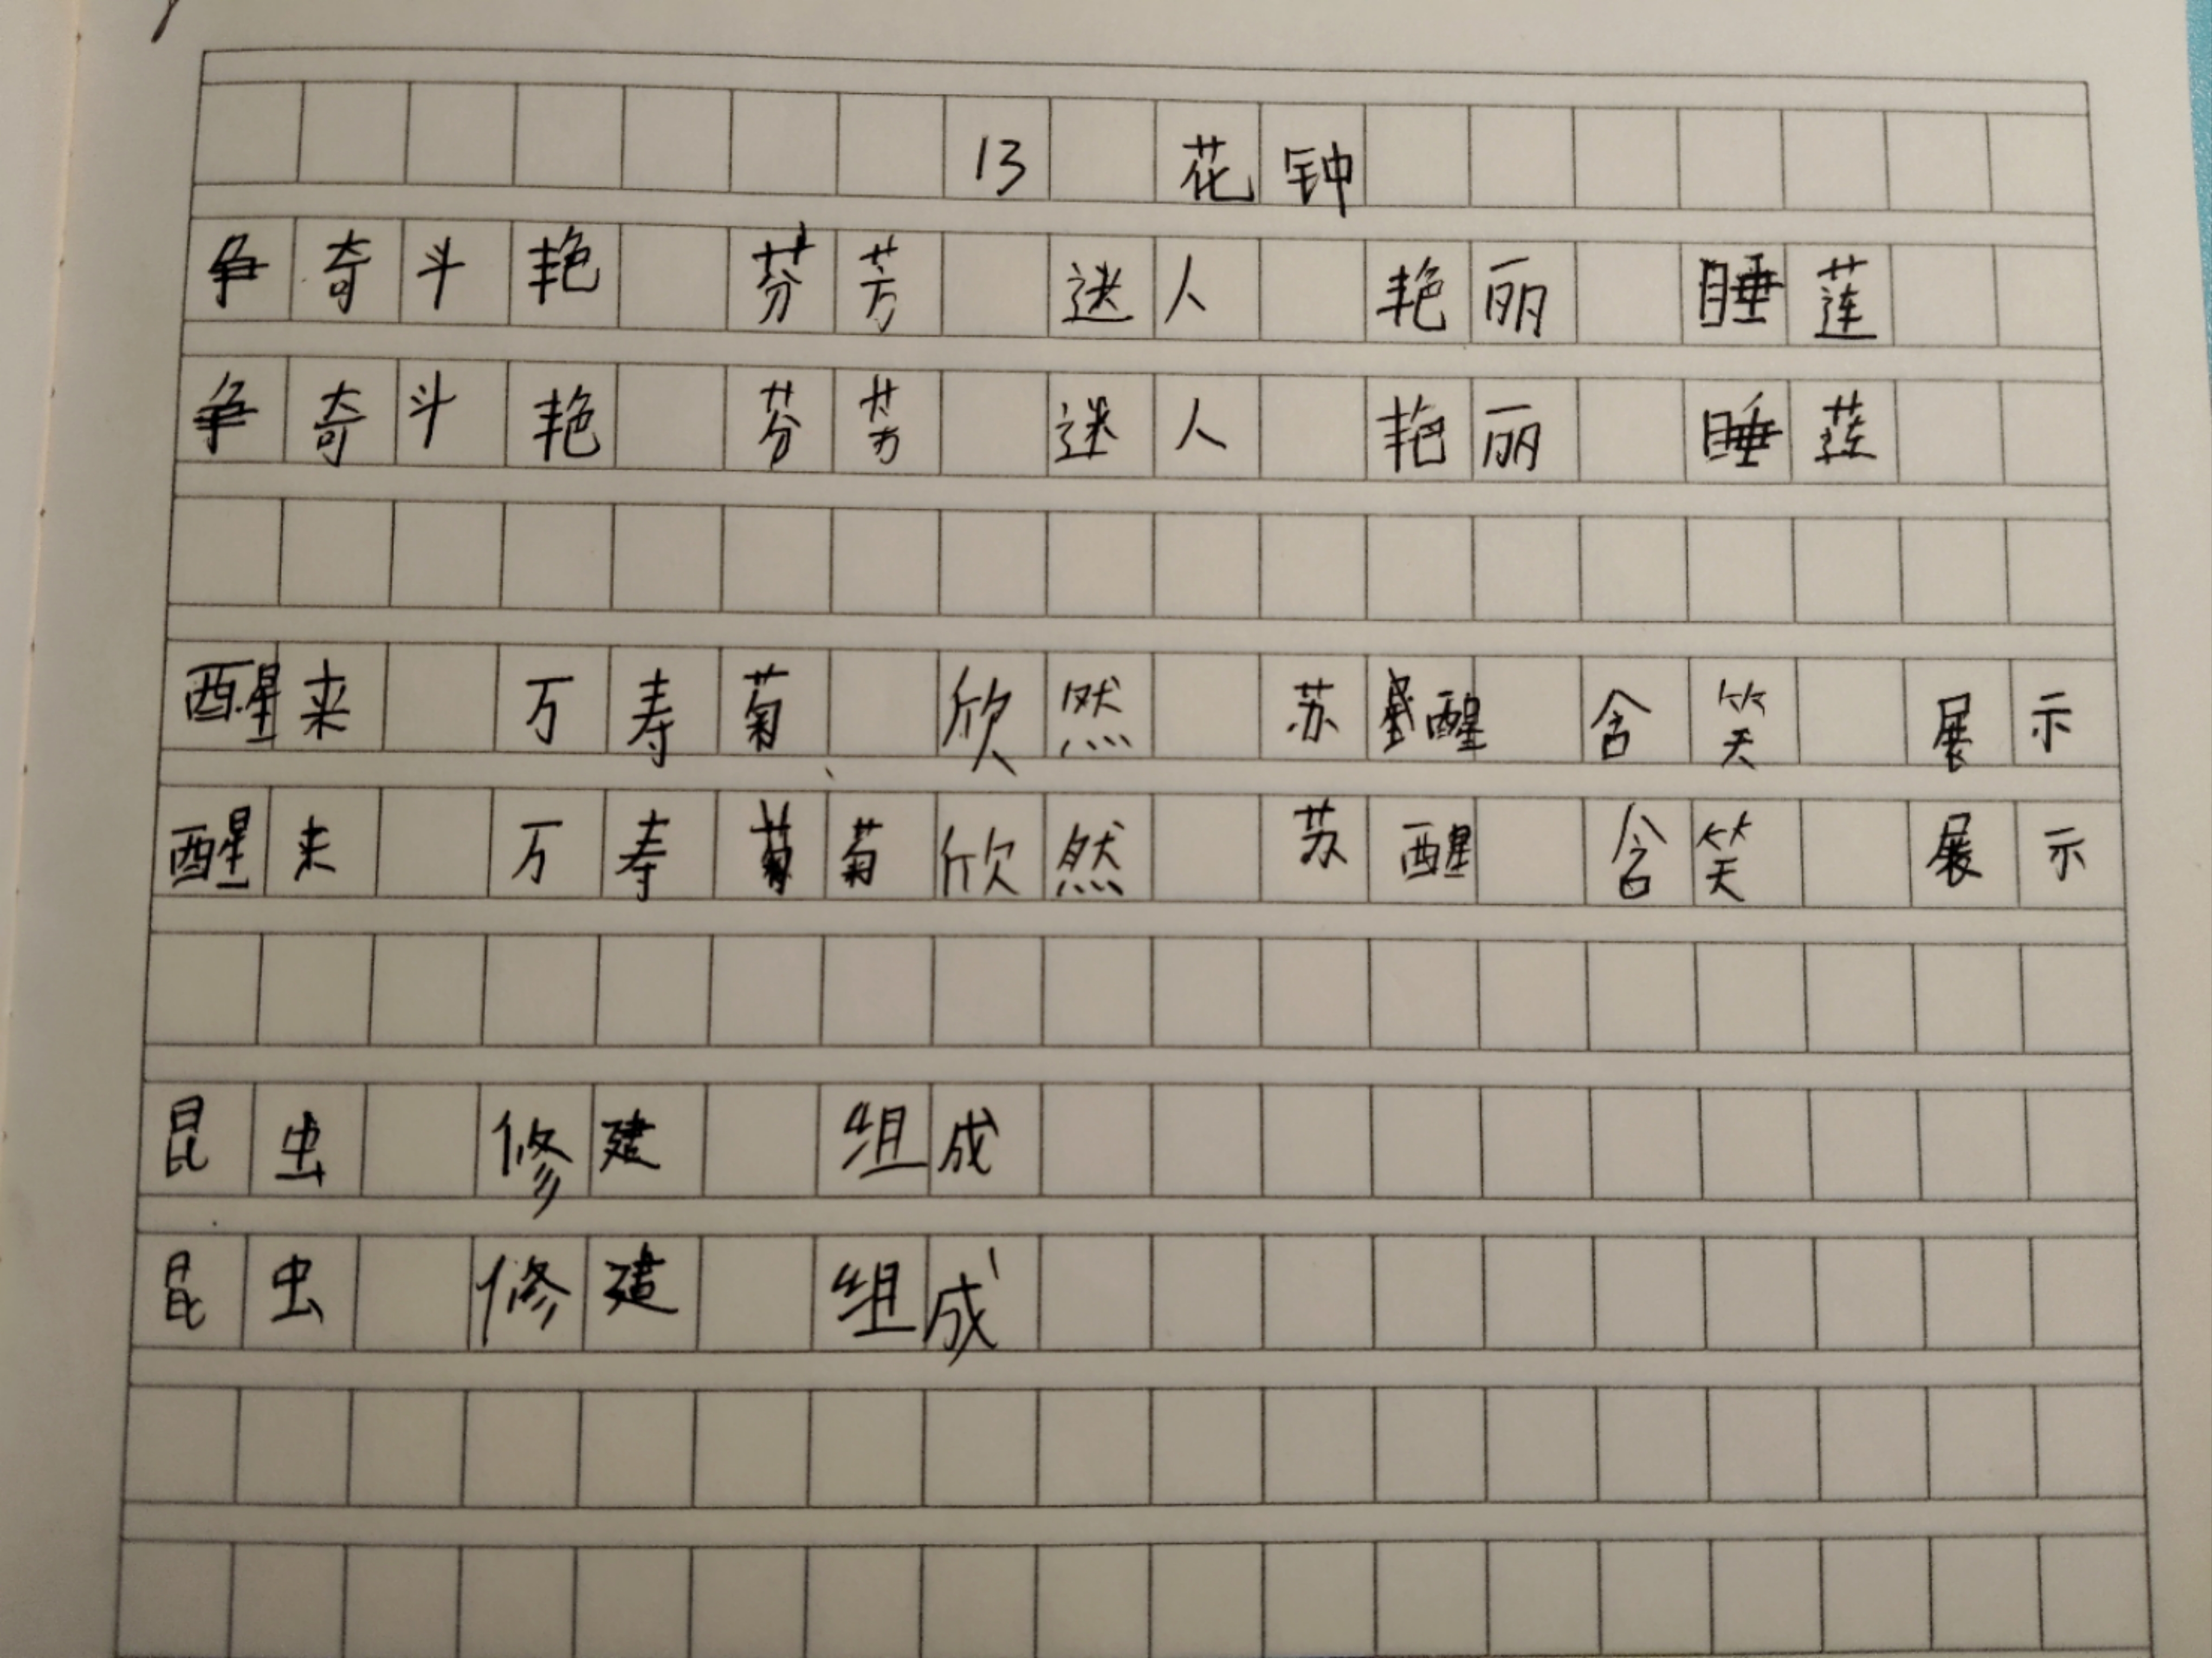 13 花钟
争奇斗艳 芬芳 迷人 艳丽 睡莲
争奇斗艳 芬芳 迷人 艳丽 睡莲
醒来 万寿菊 欣然 苏醒 含笑 展示
醒来 万寿菊 欣然 苏醒 含笑 展示
昆虫 修建 组成
昆虫 修建 组成